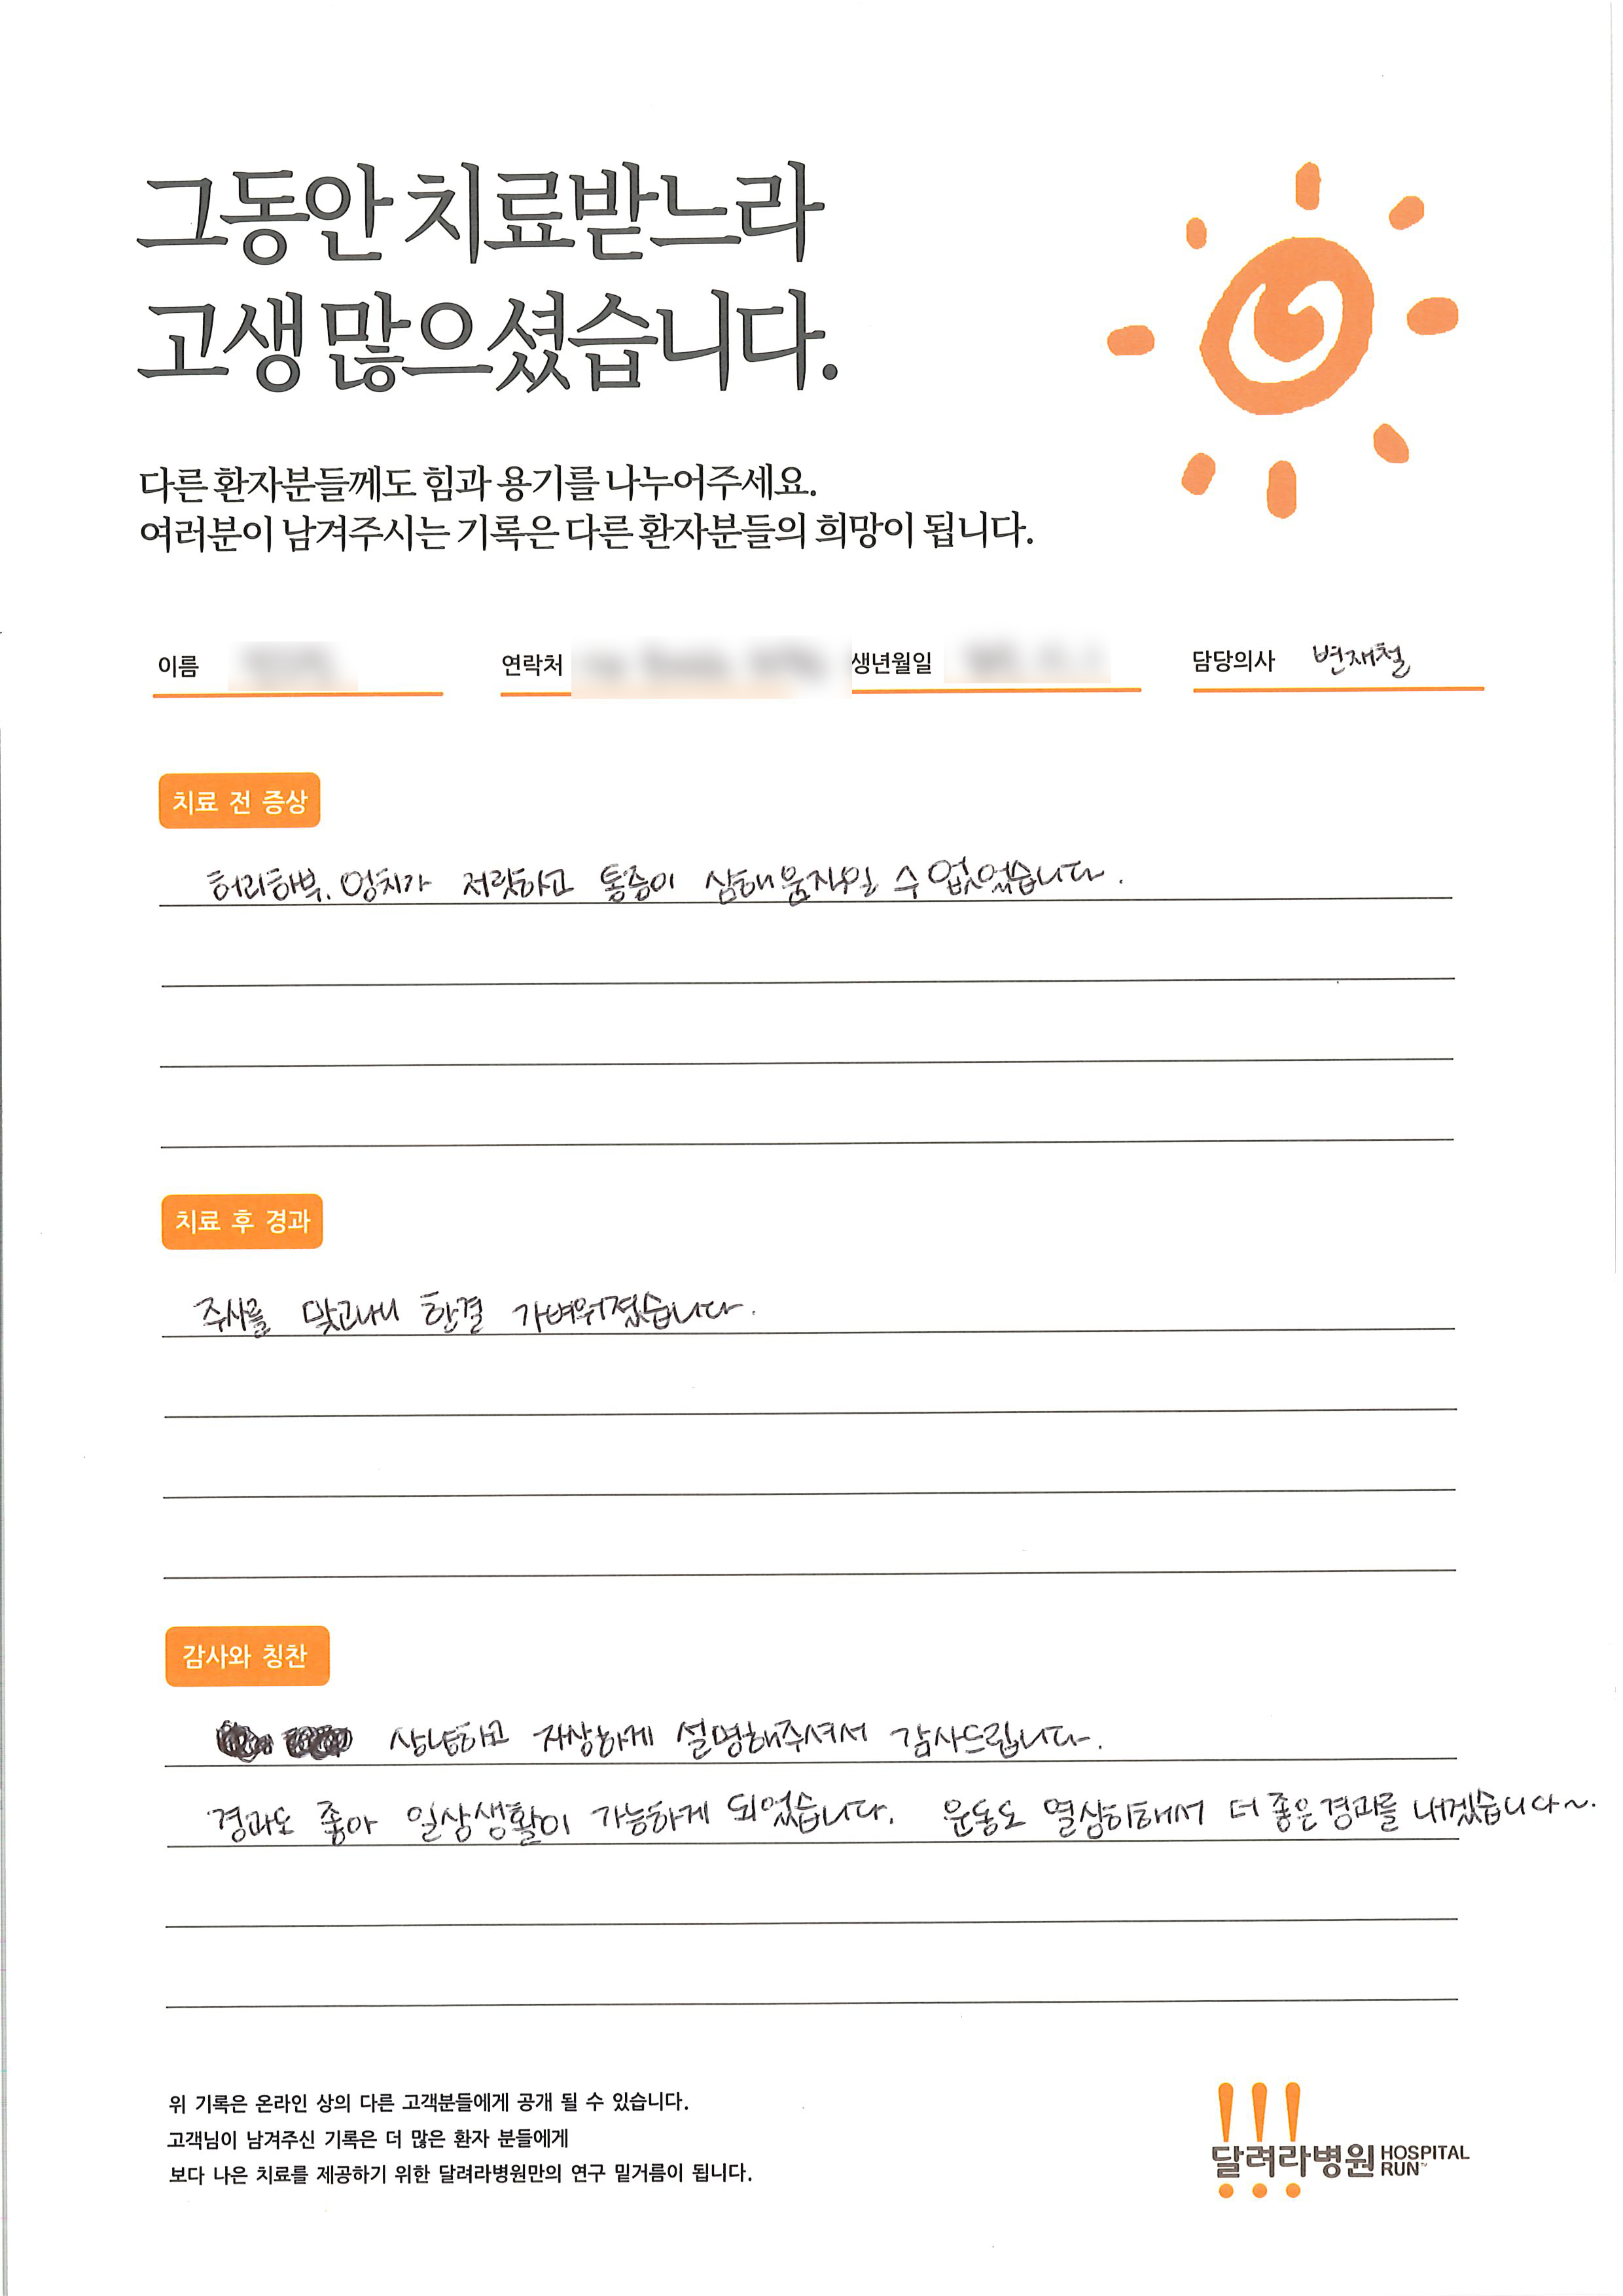 그동안 치료받느라
고생 많으셨습니다.
다른 환자분들께도 힘과 용기를 나누어주세요.
여러분이 남겨주시는 기록은 다른 환자분들의 희망이 됩니다.
이름 연락처 생년월일 담당의사 변재철
치료 전 증상
허리하부, 엉치가 저릿하고 통증이 심해 움직일 수 없었습니다.
치료 후 경과
주사를 맞고나니 한결 가벼워졌습니다.
감사와 칭찬
상냥하고 자상하게 설명해주셔서 감사드립니다.
경과도 좋아 일상생활이 가능하게 되었습니다. 운동도 열심히해서 더 좋은 경과를 내겠습니다~.
위 기록은 온라인 상의 다른 고객분들에게 공개 될 수 있습니다.
고객님이 남겨주신 기록은 더 많은 환자 분들에게
보다 나은 치료를 제공하기 위한 달려라병원만의 연구 밑거름이 됩니다.
달려라병원 HOSPITAL RUN™